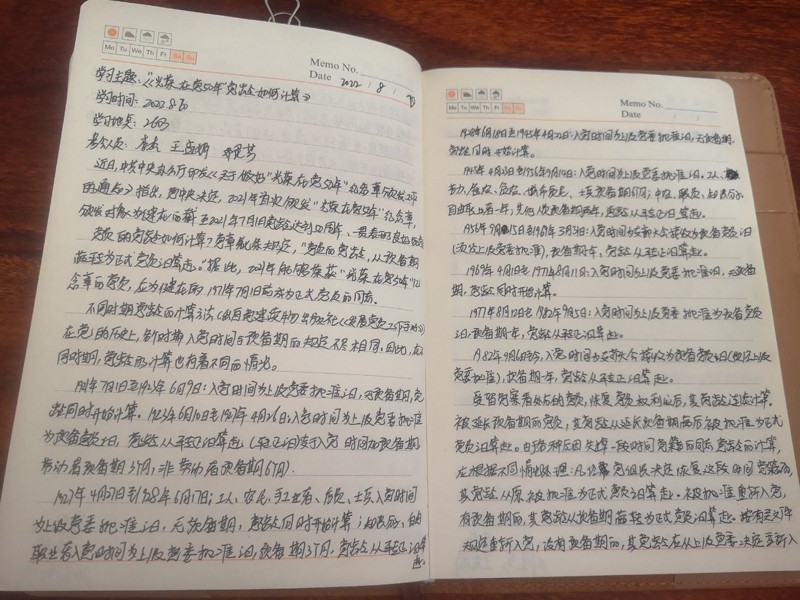 Mo Tu We Th Fr Sa Su
Memo No.
Date 2022 / 8 /
学习主题:《"光荣在党50年"党龄如何计算》
学习时间:2022.8
学习地点:2603
参会人员:
近日,中共中央办公厅印发《关于做好"光荣在党50年"纪念章颁发工作
的通知》指出,党中央决定,2021年首次颁发"光荣在党50年"纪念章,
颁发对象为健在的截至2021年7月1日党龄达到50周年、一贯表现良好的
党员的党龄如何计算?党章规定,"党员的党龄,从预备期
满转为正式党员之日算起。"据此,2021年能够获"光荣在党50年"纪
念章的党员,应为健在的1971年7月1日前成为正式党员的同志。
不同时期党龄的计算方法
在党的历史上,新时期入党时间与预备期的规定不尽相同。因此,在不
同时期,党龄的计算也有着不同的情况。
1921年7月1日至1923年6月9日:入党时间为上级党委批准之日,无预备期,党
龄同时开始计算。1923年6月10日至1927年4月26日:入党时间为上级党委批准
为预备党员之日,党龄从转正之日算起(转正之日等于入党时间加预备期
劳动者预备期3个月,非劳动者预备期6个月)。
1927年4月27日到1928年6月17日:工人、农民、手工业者、店员、士兵入党时间
为上级党委批准之日,无预备期,党龄同时开始计算;知识分子、自由
职业者入党时间为上级党委批准之日,预备期3个月,党龄从转正之日算
起。
Mo Tu We Th Fr Sa Su
Memo No.
Date / /
1928年6月18日至1945年4月22日:入党时间为上级党委批准之日,无预备期,
党龄同时开始计算。
1945年4月23日到1956年9月14日:入党时间为上级党委批准之日。工人、
苦力、雇农、贫农、城市贫民、士兵预备期;中农、职员、知识分子、
自由职业者一年;其他人预备期两年,党龄从转正之日算起。
1956年9月15日至1969年3月31日:入党时间为支部大会接收为预备党员之日
(须经上级党委批准),预备期一年,党龄从转正之日算起。
1969年4月1日至1977年8月11日:入党时间为上级党委批准之日,无预备
期,党龄同时开始计算。
1977年8月12日至1982年9月5日:入党时间为上级党委批准为预备党员
之日,预备期一年,党龄从转正之日算起。
1982年9月6日后,入党时间为支部大会接收为预备党员之日(须经上级
党委批准),预备期一年,党龄从转正之日算起。
受留党察看处分的党员,恢复党员权利以后,其党龄连续计算。
被延长预备期的党员,其党龄从延长预备期满后被批准为正式
党员之日算起。由于各种原因失掉一段时间党籍的同志党龄的计算,
应根据不同情况处理:凡经党组织决定恢复这段时间党籍的,
其党龄从原被批准为正式党员之日算起。被批准重新入党,
有预备期的,其党龄从预备期满转为正式党员之日算起。按有关文件
规定重新入党,没有预备期的,其党龄应从上级党委决定重新入